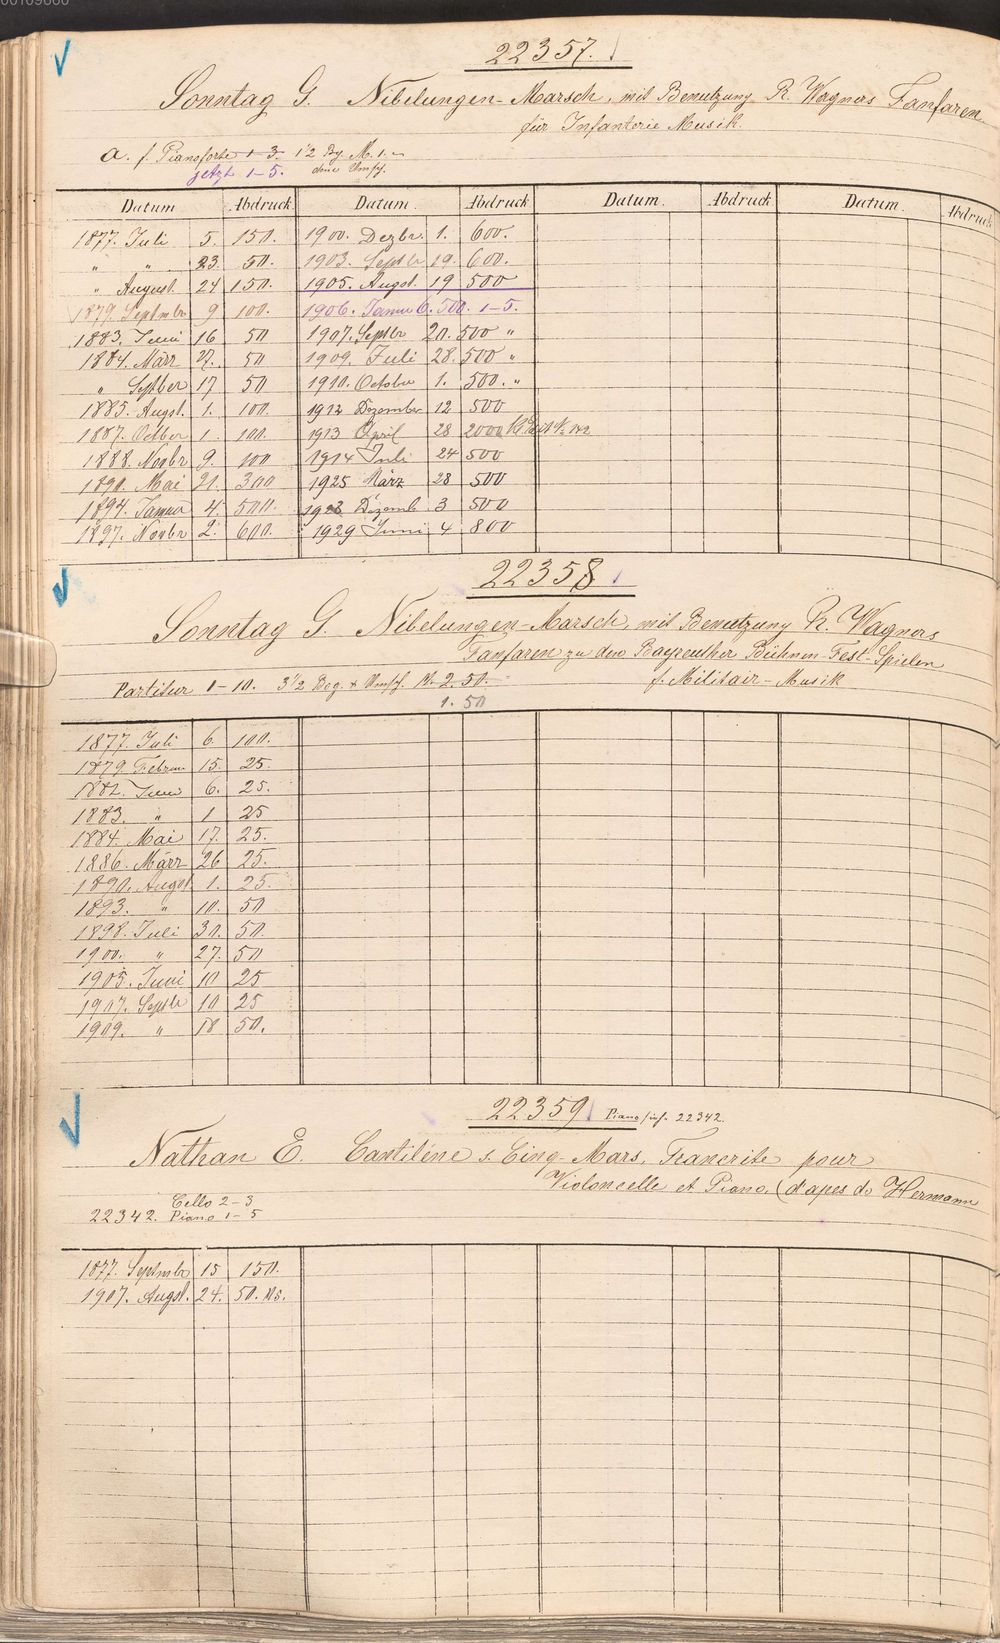 22357.
Sonntag G. Nibelungen-Marsch, mit Benutzung R. Wagners Fanfaren
für Infanterie Musik.
a. f. Pianoforte 1-3. 1½ Bg M. 1.-
jetzt 1-5. ohne Umsch.
Datum Abdruck Datum. Abdruck Datum. Abdruck Datum. Abdruck
1877. Juli 5. 150. 1900. Dezbr. 1. 600.
" " 23. 50. 1903. Septbr 19. 600.
" August. 24 150. 1905. Augst. 19 500
1879. Septmbr 9 100. 1906. Januar 6. 500. 1-5.
1883. Juni 16 50 1907. Septbr 20. 500 "
1884. März 27. 50 1909. Juli 28. 500 "
" Septber 17 50 1910. October 1. 500. "
1885. Augst. 1. 100. 1912 Dezember 12 500
1887. Octber 1. 100. 1913 April 28 2000
1888. Novbr 9. 100 1914 Juli 24 500
1890. Mai 21. 300 1925 März 28 500
1894. Januar 4. 500. Dezemb. 3 500
1897. Novbr 2. 600. 1929 Juni 4 800
22358
Sonntag G. Nibelungen-Marsch, mit Benutzung R. Wagners
Fanfaren zu den Bayreuther Bühnen-Fest-Spielen
Partitur 1-10. 3½ Bog. + Umsch. M. 2.50. f. Militair-Musik
1.50
1877. Juli 6 100.
1879. Februar 15. 25.
1882. Juni 6. 25.
1883. " 1 25
1884. Mai 17. 25.
1886. März 26 25.
1890. Augst. 1. 25.
1893. " 10. 50
1898. Juli 30. 50.
1900. " 27. 50
1905. Juni 10 25
1907. Septbr 10 25
1909. " 18 50.
22359 Piano inf. 22342.
Nathan E. Cantiléne s. Cinq-Mars, Trancrite pour
Violoncelle et Piano, (d'apes do Hermann
Cello 2-3
22342. Piano 1-5
1877. Septmbr 15 150.
1907. Augst. 24. 50. ns.